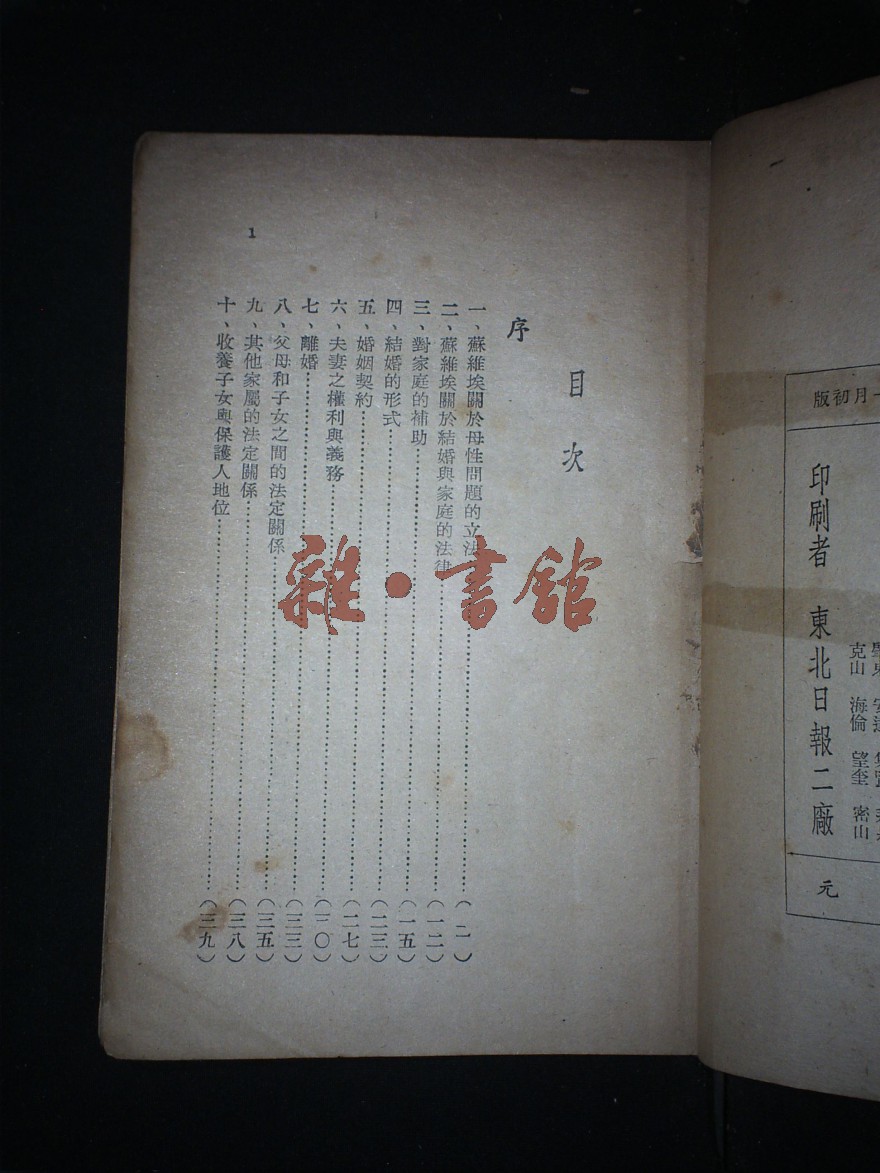 目次
序
一、蘇維埃關於母性問題的立法……(二)
二、蘇維埃關於結婚與家庭的法律……(一二)
三、對家庭的補助……(一五)
四、結婚的形式……(二三)
五、婚姻契約……(二七)
六、夫妻之權利與義務……(三〇)
七、離婚……(三三)
八、父母和子女之間的法定關係……(三五)
九、其他家屬的法定關係……(三八)
十、收養子女與保護人地位……(三九)
1
雜·書館
月初版
印刷者 東北日報二廠
克山 海倫 望奎 密山
元